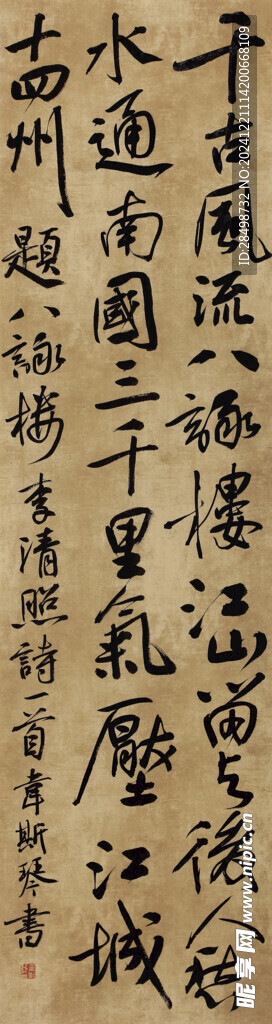 千古風流八詠樓江山留与後人愁
水通南國三千里氣壓江城
十四州 題八詠楼 李清照詩一首韋斯琴書
昵享网 www.nipic.cn
ID:28498732 NO:20241221114200668109